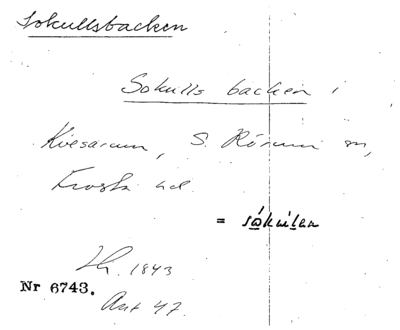 Sokullsbacken
Sokulls backen i
Kvesarum, S. Rörum sn,
Frosta hd.
= såkulen
Lh. 1843
Nr 6743.
Ant 47.